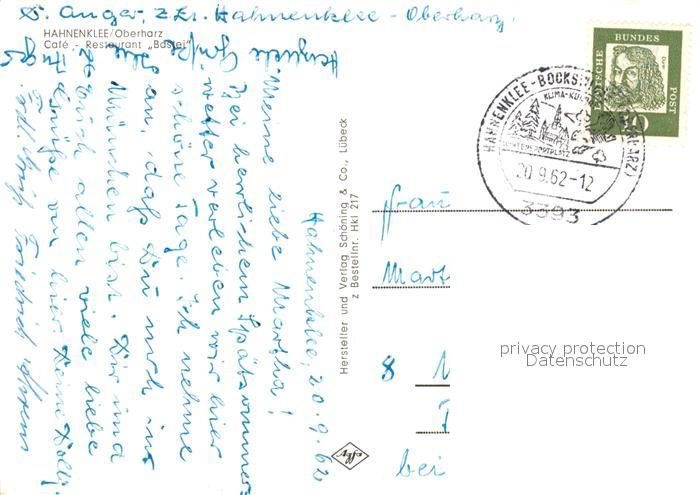 D. Anger, z. Zt. Hahnenklee-Oberharz.
HAHNENKLEE/Oberharz
Café - Restaurant „Bastei"
Hahnenklee, 20.9.62
Meine liebe Martha!
Bei herrlichem Spätsommer-
wetter verleben wir hier
schöne Tage. Ich nehme
an, daß Du noch in
München bist. Dir und
auch allen viele liebe
Grüße von hier. Deine Dolly.
Herzliche Grüße
Friedrich
Hersteller und Verlag Schöning & Co., Lübeck
z Bestellnr. Hkl 217
BUNDES
DEUTSCHE
POST
Dürer
HAHNENKLEE-BOCKSW
HARZ)
KLIMA-KUR
WINTERSPORTPLATZ
20.9.62-12
3393
Frau
Mart
8 M
bei
privacy protection
Datenschutz